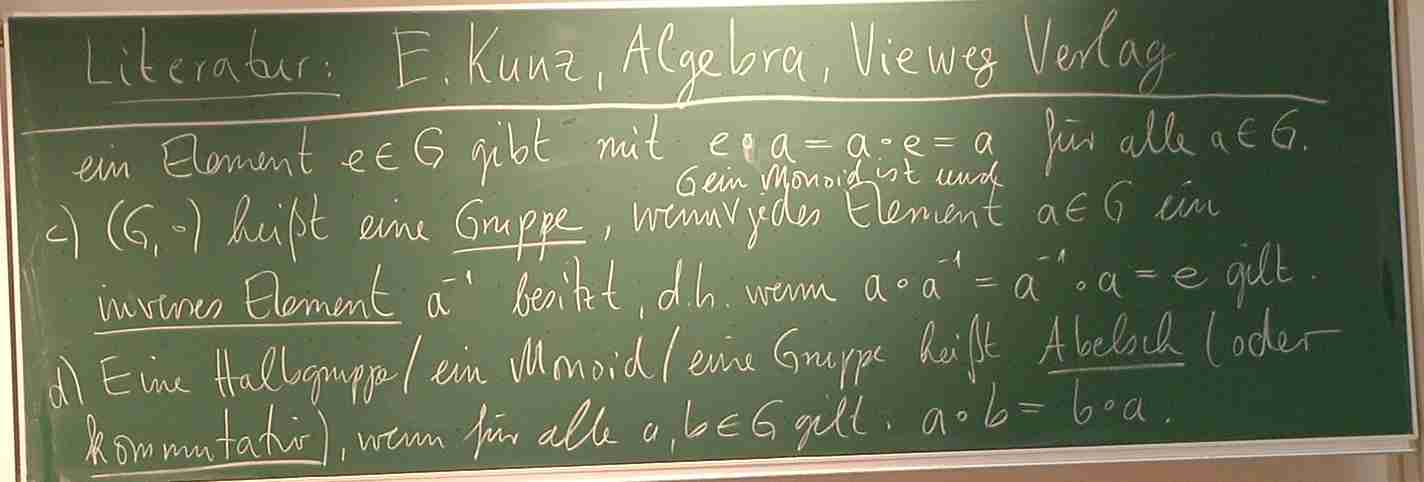 Literatur: E. Kunz, Algebra, Vieweg Verlag
ein Element e ∈ G gibt mit e ∘ a = a ∘ e = a für alle a ∈ G.
G ein Monoid ist und
c) (G, ∘) heißt eine Gruppe, wenn ∨ jedes Element a ∈ G ein
inverses Element a⁻¹ besitzt, d.h. wenn a ∘ a⁻¹ = a⁻¹ ∘ a = e gilt.
d) Eine Halbgruppe / ein Monoid / eine Gruppe heißt Abelsch (oder
kommutativ), wenn für alle a, b ∈ G gilt: a ∘ b = b ∘ a.